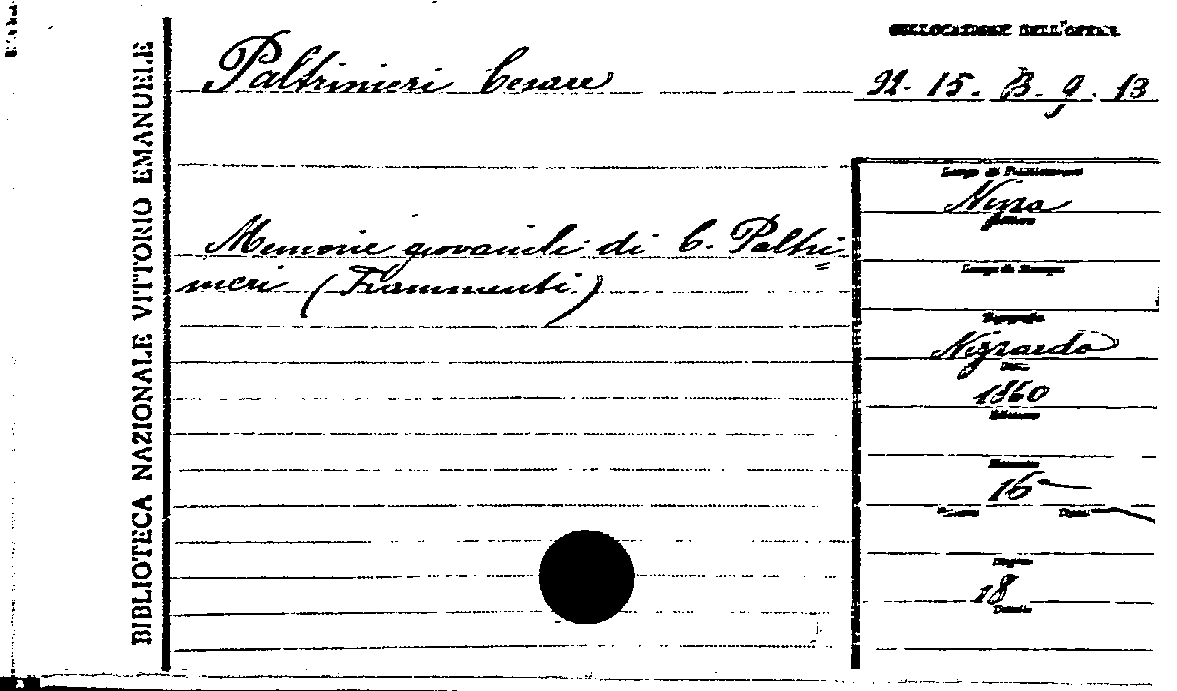 BIBLIOTECA NAZIONALE VITTORIO EMANUELE
COLLOCAZIONE DELL'OPERA
Paltrinieri Cesare
92. 15. B. 9. 13
Luogo di Pubblicazione
Nizza
Editore
Memorie giovanili di C. Paltri-
nieri (Frammenti.)
Luogo di Stampa
Tipografia
Data
1860
Edizione
Formato
16°
Volumi
Pagine
18